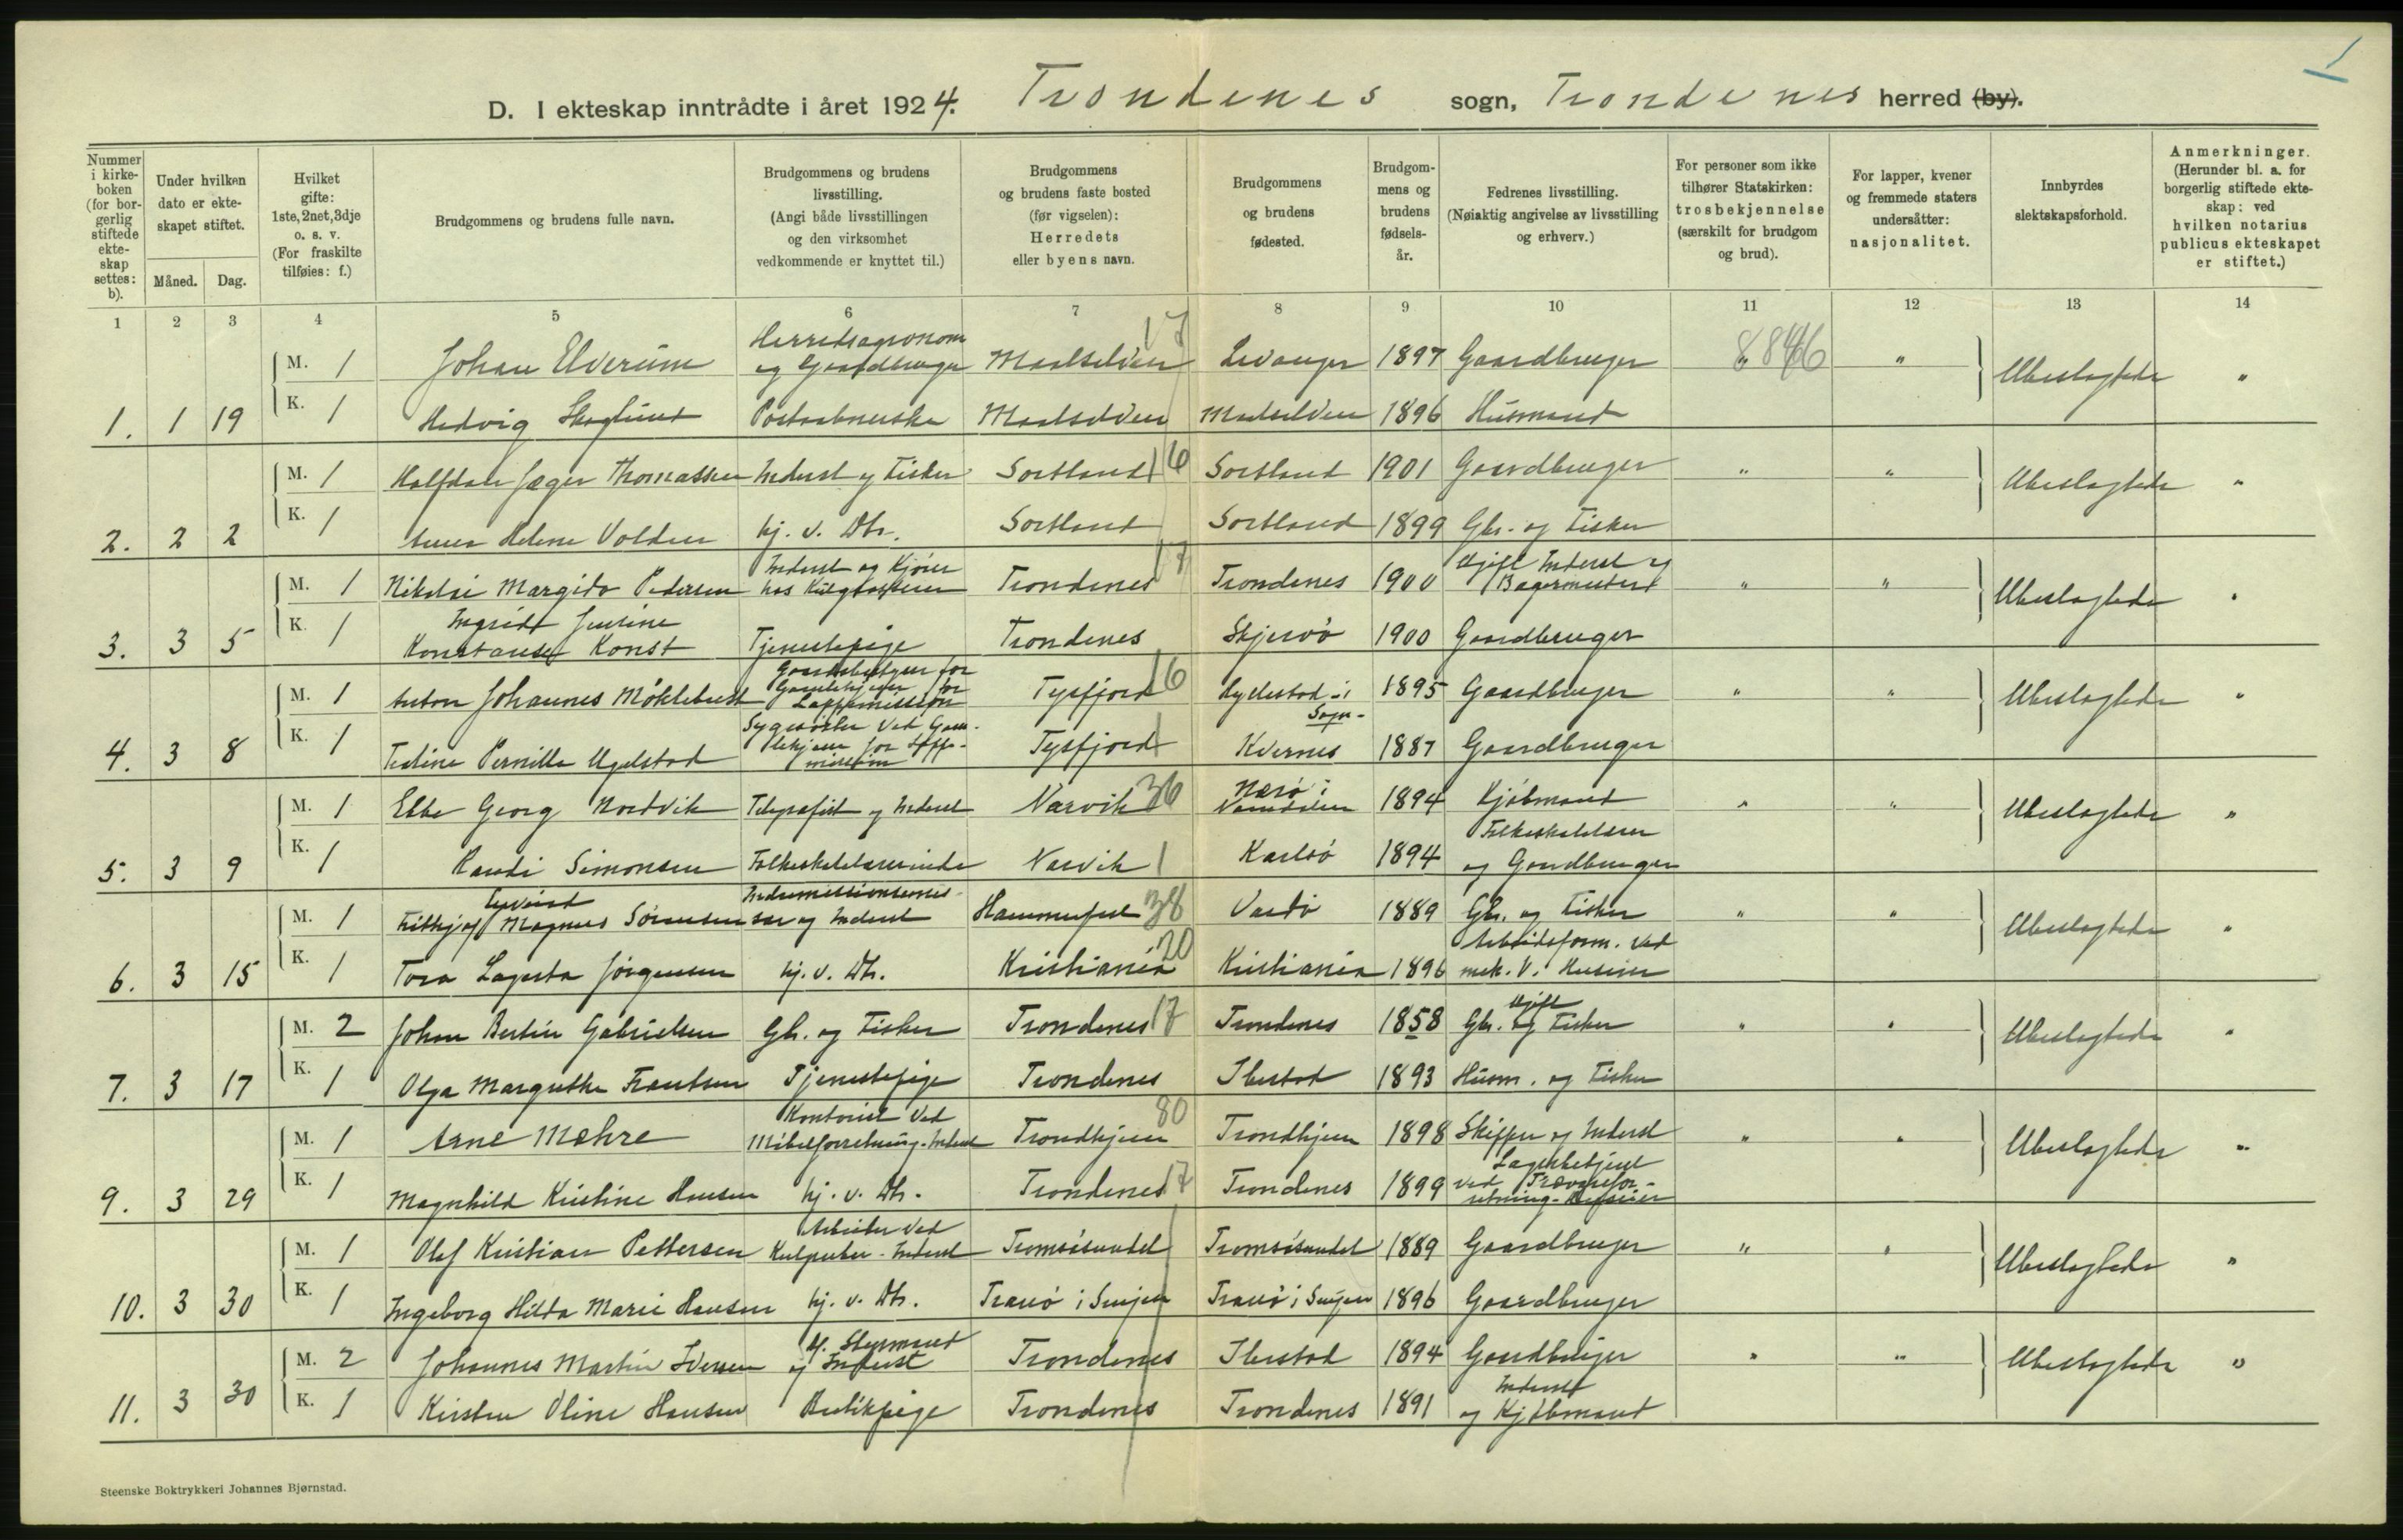 1
D. I ekteskap inntrådte i året 1924. Trondenes sogn, Trondenes herred (by).
Nummer i kirkeboken (for borgerlig stiftede ekteskap settes: b).
Under hvilken dato er ekteskapet stiftet.
Måned. Dag.
Hvilket gifte: 1ste, 2net, 3dje o. s. v. (For fraskilte tilføies: f.)
Brudgommens og brudens fulle navn.
Brudgommens og brudens livsstilling. (Angi både livsstillingen og den virksomhet vedkommende er knyttet til.)
Brudgommens og brudens faste bosted (før vigselen): Herredets eller byens navn.
Brudgommens og brudens fødested.
Brudgommens og brudens fødselsår.
Fedrenes livsstilling. (Nøiaktig angivelse av livsstilling og erhverv.)
For personer som ikke tilhører Statskirken: trosbekjennelse (særskilt for brudgom og brud).
For lapper, kvener og fremmede staters undersåtter: nasjonalitet.
Innbyrdes slektskapsforhold.
Anmerkninger. (Herunder bl. a. for borgerlig stiftede ekteskap: ved hvilken notarius publicus ekteskapet er stiftet.)
1 2 3 4 5 6 7 8 9 10 11 12 13 14
M. 1 Johan Elverum Herredsagronom og Gaardbruger Maalselven 17 Levanger 1897 Gaardbruger " 8846 " Ubeslagtede "
1. 1 19 K. 1 Hedvig Skoglund Postaabnerske Maalselven Maalselven 1896 Husmand
M. 1 Halfdan Jæger Thomassen Inderst og Fisker Sortland 16 Sortland 1901 Gaardbruger " " Ubeslagtede "
2. 2 2 K. 1 Anna Helene Volden hj. v. Dtr. Sortland Sortland 1899 Gbr. og Fisker
M. 1 Nikolai Margido Pedersen Inderst og Kjører hos Trondenes 17 Trondenes 1900 Ugift Inderst og Bagermester " " Ubeslagtede "
3. 3 5 K. 1 Ingrid Justine Konstanse Konst Tjenestepige Trondenes Skjervö 1900 Gaardbruger
M. 1 Anton Johannes Möklebust Gaardsbestyrer for Gamlehjem for Lappemission Tysfjord 16 i Sogn- 1895 Gaardbruger " " Ubeslagtede "
4. 3 8 K. 1 Pernille Ugelstad Sygesöster ved Gamlehjem for Lappemission Tysfjord Kvernes 1887 Gaardbruger
M. 1 Ebbe Georg Nordvik Telegrafist og Inderst Narvik 36 Nærö i Namdalen 1894 Kjöbmand " " Ubeslagtede "
5. 3 9 K. 1 Randi Simonsen Folkeskolelærerinde Narvik Karlsö 1894 Folkeskolelærer og Gaardbruger
M. 1 Frithjof Eyvind Magnus Sörensen Indremissionsemissær og Inderst Hammerfest 38 Vardö 1889 Gbr. og Fisker " " Ubeslagtede "
6. 3 15 K. 1 Tora Lagerta Jörgensen hj. v. Dtr. Kristiania 20 Kristiania 1896 Arbeidsform. ved mek. V. Huseier
M. 2 Johan Bertin Gabrielsen Gbr. og Fisker Trondenes 17 Trondenes 1858 Ugift Gbr. og Fisker " " Ubeslagtede "
7. 3 17 K. 1 Olga Margrethe Frantsen Tjenestepige Trondenes Ibestad 1893 Husm. og Fisker
M. 1 Arne Mæhre Kontorist ved Möbelforretning-Inderst Trondhjem 80 Trondhjem 1898 Skipper og Inderst " " Ubeslagtede "
9. 3 29 K. 1 Magnhild Kristine Hansen hj. v. Dtr. Trondenes 17 Trondenes 1899 Lagerbetjent ved Trævareforretning-
M. 1 Olaf Kristian Pettersen Arbeider ved Kulgruber-Inderst Tromsösundet Tromsösundet 1889 Gaardbruger " " Ubeslagtede "
10. 3 30 K. 1 Ingeborg Hilda Marie Hansen hj. v. Dtr. Tranö i Senjen Tranö i Senjen 1896 Gaardbruger
M. 2 Johannes Martin Iversen Styrmand og Inderst Trondenes Ibestad 1894 Gaardbruger " " Ubeslagtede "
11. 3 30 K. 1 Kirsten Oline Hansen Butikpige Trondenes Trondenes 1891 Inderst og Kjöbmand
Steenske Boktrykkeri Johannes Bjørnstad.